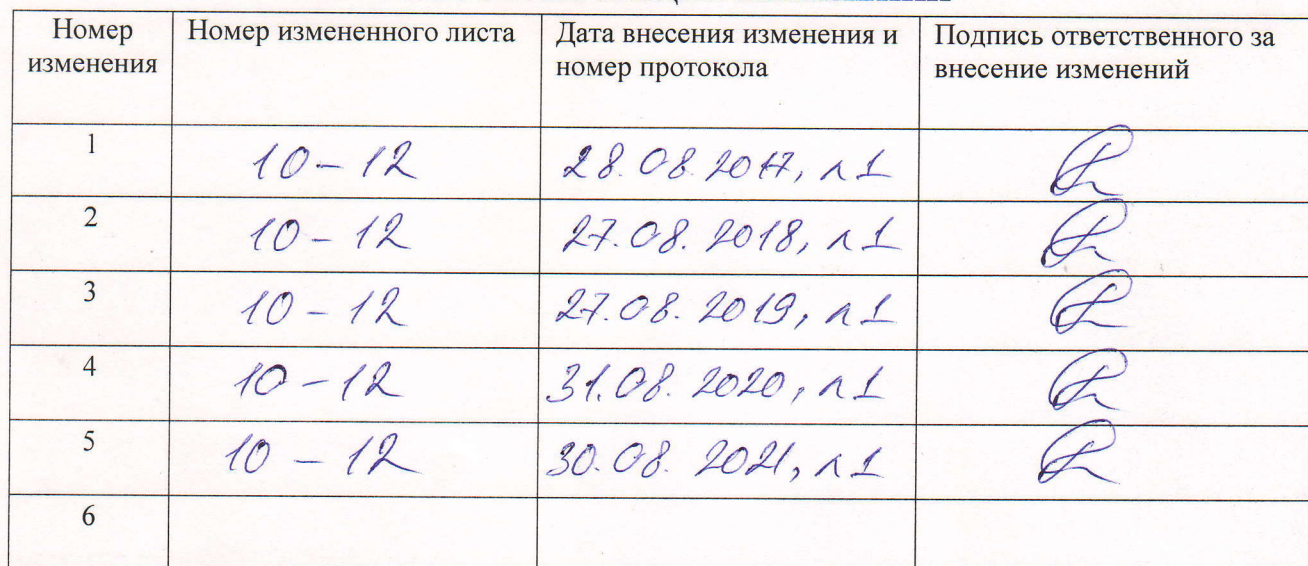 Номер изменения Номер измененного листа Дата внесения изменения и номер протокола Подпись ответственного за внесение изменений
1 10 – 12 28.08.2017, п 1
2 10 – 12 27.08.2018, п 1
3 10 – 12 27.08.2019, п 1
4 10 – 12 31.08.2020, п 1
5 10 – 12 30.08.2021, п 1
6